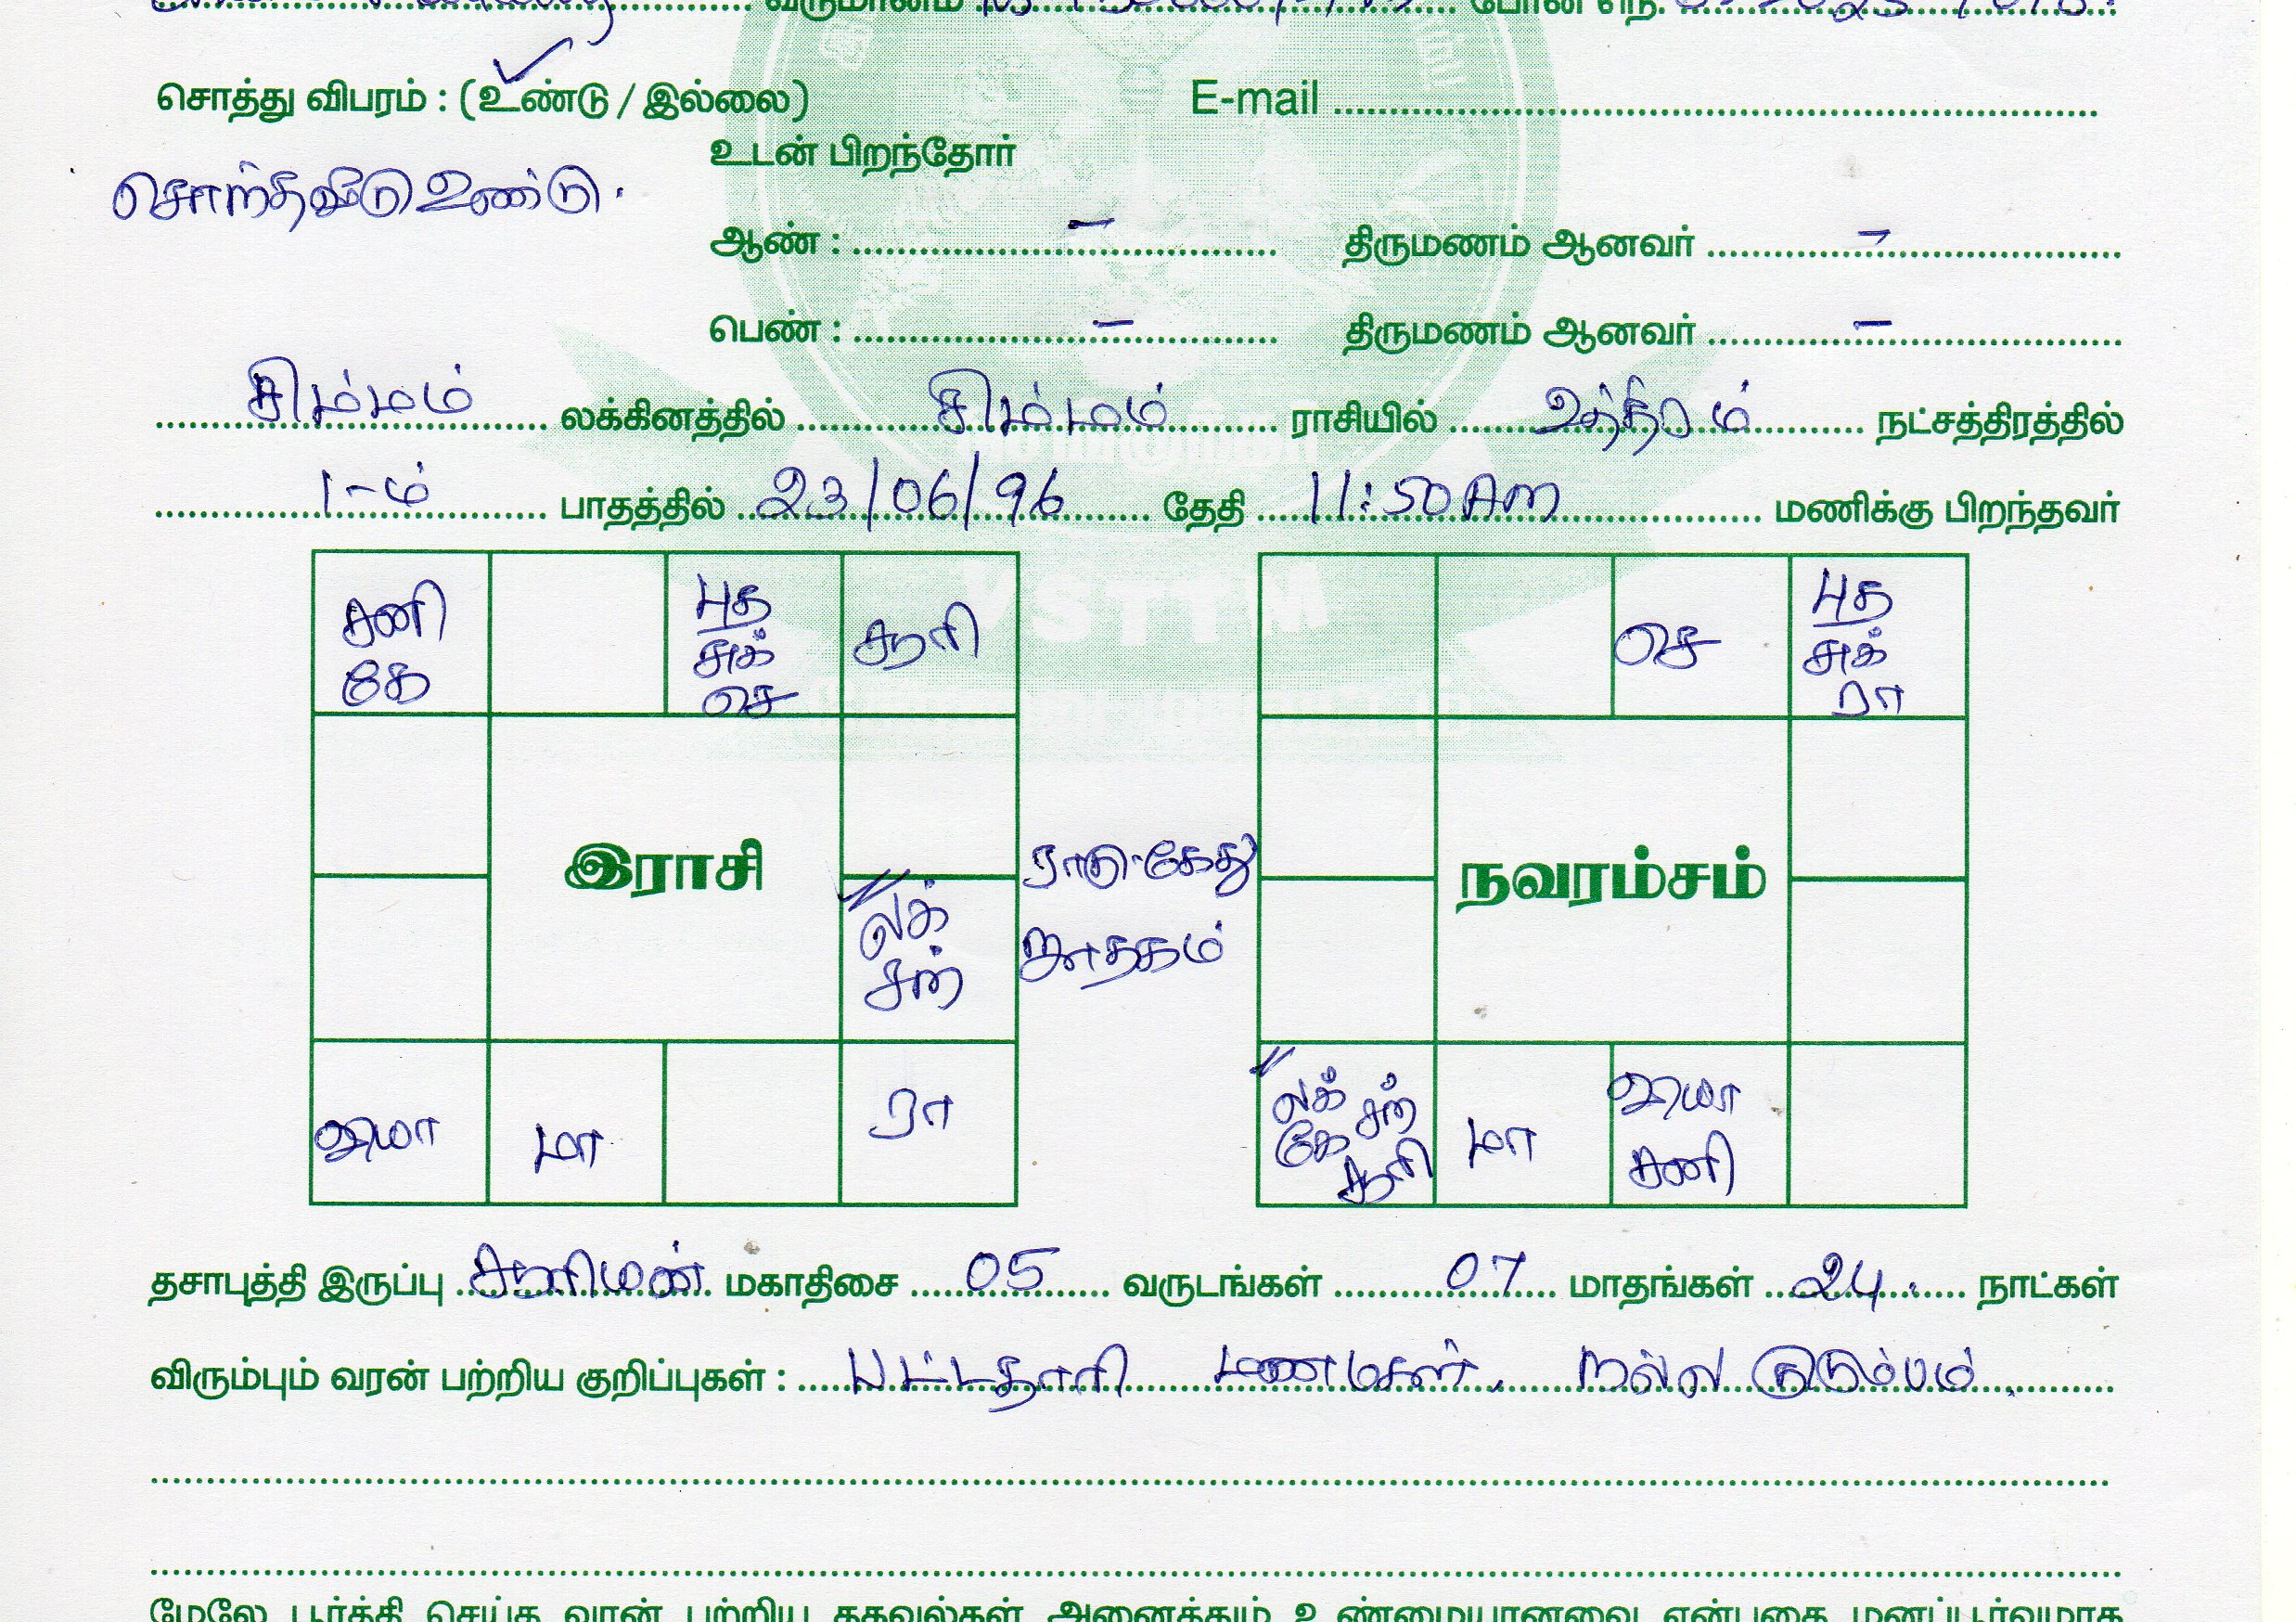 வருமானம் போன் எந்.
சொத்து விபரம் : (உண்டு / இல்லை) E-mail
உடன் பிறந்தோர்
சொந்தவீடு உண்டு.
ஆண் : – திருமணம் ஆனவர் –
பெண் : – திருமணம் ஆனவர் –
சிம்மம் லக்கினத்தில் சிம்மம் ராசியில் உத்திரம் நட்சத்திரத்தில்
1-ம் பாதத்தில் 23/06/96 தேதி 11:50 AM மணிக்கு பிறந்தவர்
VSTTM
சனி புத சூரி
கே சுக்
செ
லக்
சந்
வியா மா ரா
இராசி
ராகு-கேது
ஜாதகம்
செ புத
சுக்
ரா
நவரம்சம்
லக் சந் மா வியா
கே சூரி சனி
தசாபுத்தி இருப்பு சூரியன் மகாதிசை 05 வருடங்கள் 07 மாதங்கள் 24. நாட்கள்
விரும்பும் வரன் பற்றிய குறிப்புகள் : பட்டதாரி மணமகன், நல்ல குடும்பம்.
மேலே பூர்த்தி செய்த வரன் பற்றிய தகவல்கள் அனைத்தும் உண்மையானவை என்பதை மனப்பூர்வமாக